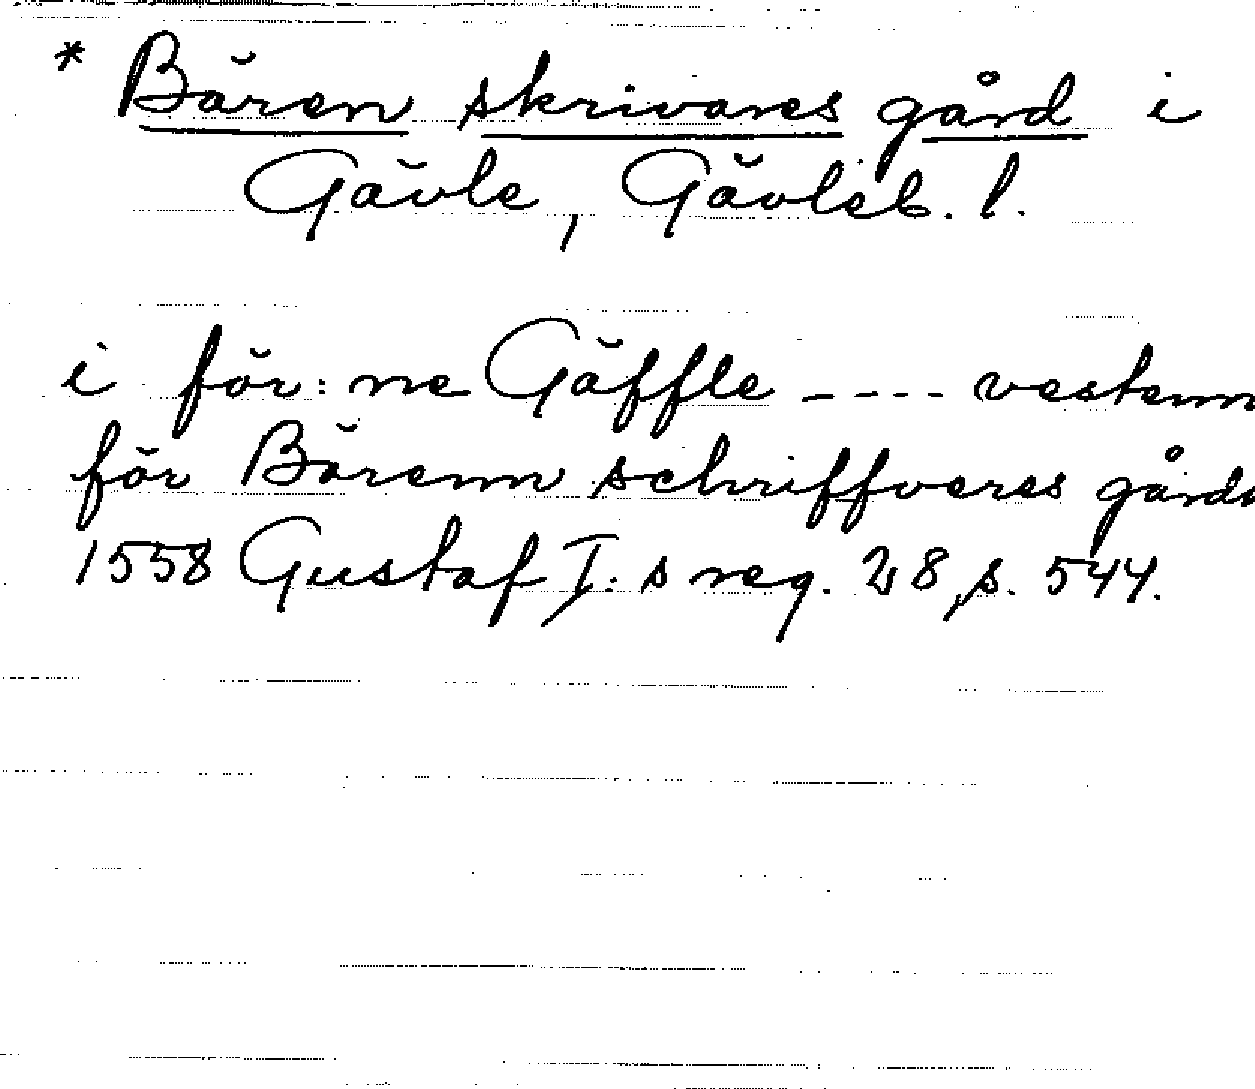 * Bären skrivares gård i
Gävle, Gävleb. l.
i för:ne Gäffle ---- vestenn
för Bärenn schriffveres
1558 Gustaf I:s reg. 28, s. 544.